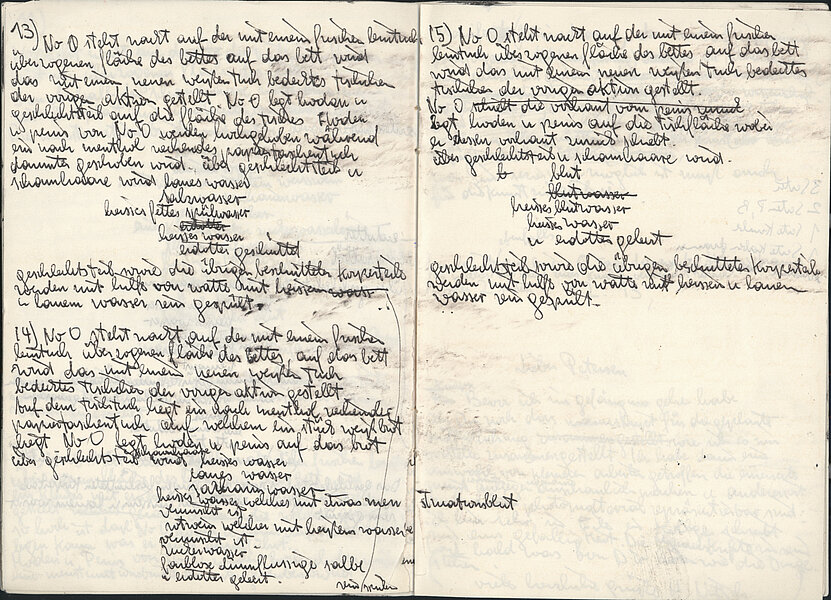 13) No O steht nackt auf der mit einem frischen leintuch
überzogenen fläche des bettes auf das bett wird
das mit einem neuen weißen tuch bedeckte tischchen
der vorigen aktion gestellt. No O legt hoden u
geschlechtsteil auf die fläche des tisches. Hoden
u penis von No O werden hochgehoben während
ein nach menthol riechendes papiertaschentuch
darunter geschoben wird. über geschlechtsteil u
schamhaare wird laues wasser
salzwasser
heisses fettes spülwasser
eidotter
heisses wasser
eidotter geschüttet
geschlechtsteil sowie die übrigen beschütteten körperteile
werden mit hilfe von watte mit heissem wasser
u lauem wasser rein gespült.
14) No O steht nackt auf der mit einem frischen
leintuch überzogenen fläche des bettes, auf das bett
wird das mit einem neuen weißen tuch
bedeckte tischchen der vorigen aktion gestellt
auf dem tischtuch liegt ein nach menthol riechendes
papiertaschentuch auf welchem ein stück weißbrot
liegt. No O legt hoden u penis auf das brot
über geschlechtsteil u schamhaare wird heisses wasser
laues wasser
heisses wasser welches mit etwas
vermischt ist
rotwein welcher mit heißem wasser
vermischt ist.
zuckerwasser
farblose dünnflüssige salbe
u eidotter geleert.
15) No O steht nackt auf der mit einem frischen
leintuch überzogenen fläche des bettes auf das bett
wird das mit einem neuen weißen tuch bedeckte
tischchen der vorigen aktion gestellt.
No O schiebt die vorhaut vom penis zurück
legt hoden u penis auf die tischfläche wobei
er dessen vorhaut zurück schiebt.
über geschlechtsteil u schamhaare wird
b blut
blutwasser
heisses blutwasser
heisses wasser
u eidotter geleert
geschlechtsteil sowie die übrigen beschütteten körperteile
werden mit hilfe von watte mit heissem u lauem
wasser rein gespült.